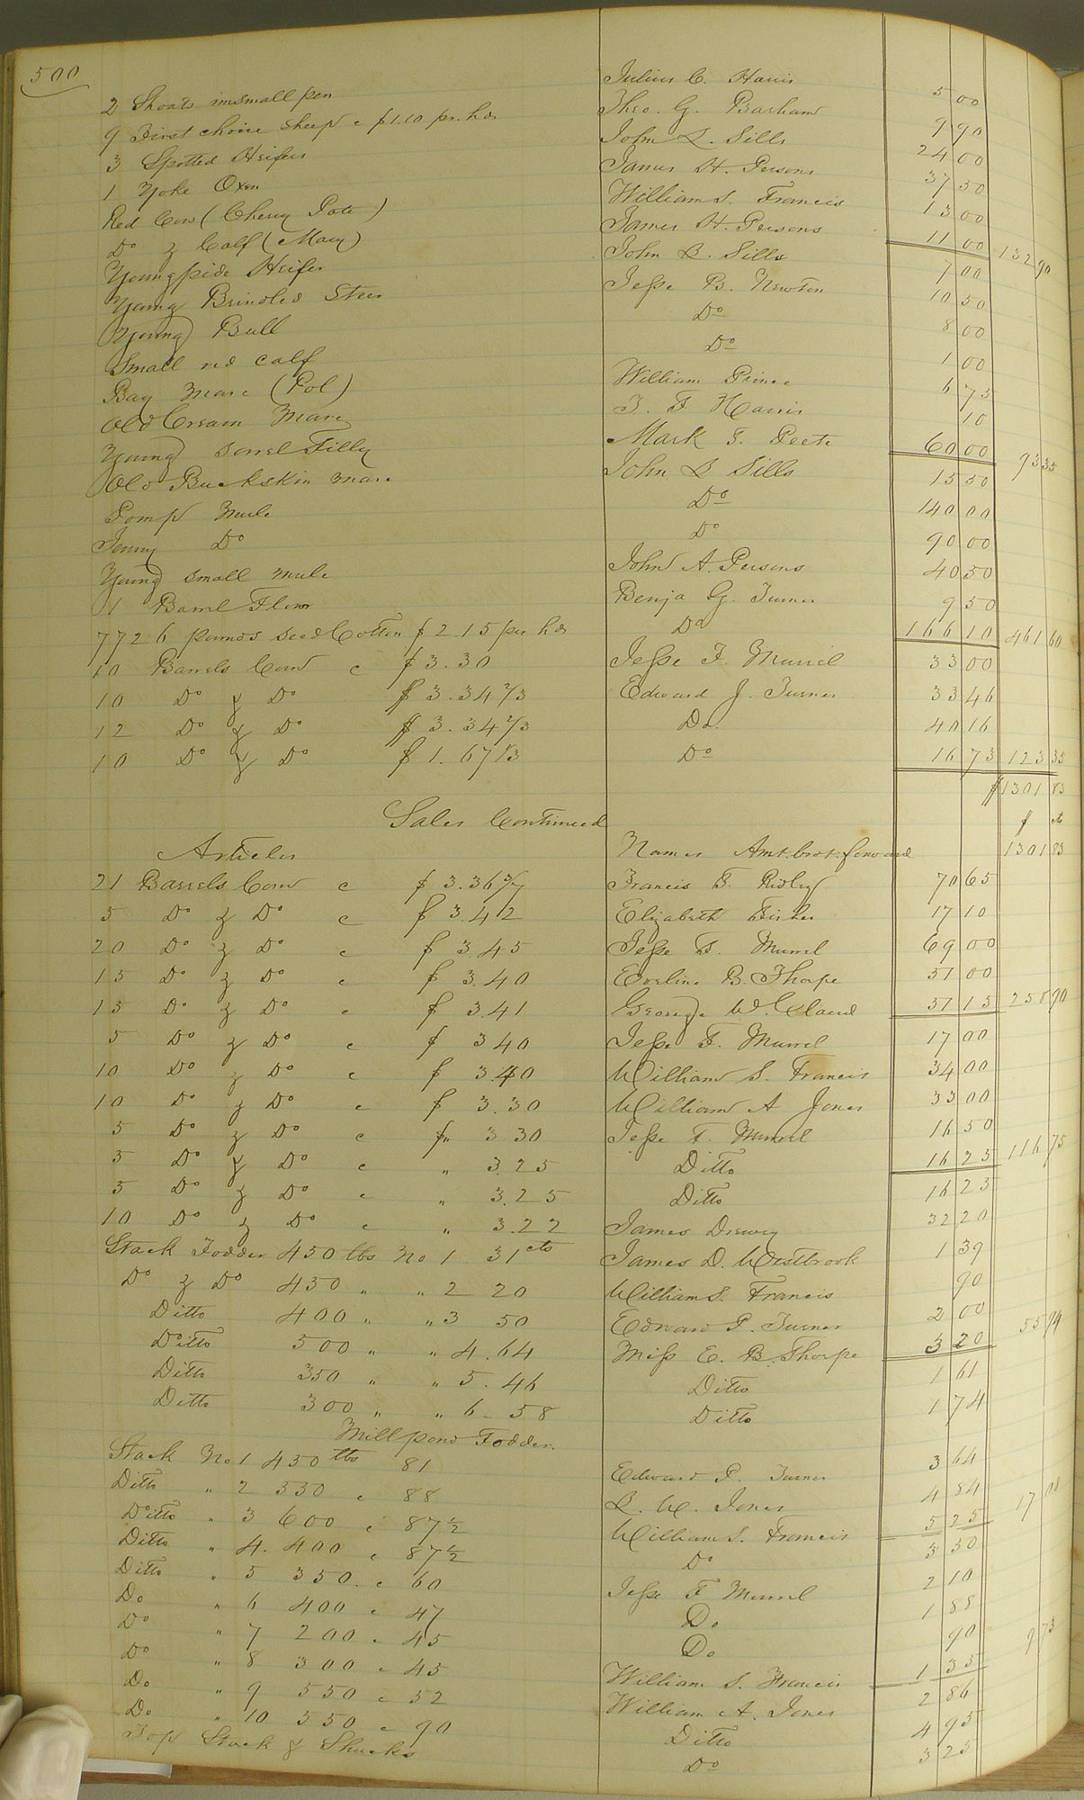 500
2 Shoats in small pen Julius C. Harris 5 00
9 First choice Sheep @ $1.10 pr. hd Theo. G. Barham 9 90
3 Spotted Heifers John L. Sills 24 00
1 Yoke Oxen James H. Persons 37 50
Red Cow (Cherry Pote) William S. Francis 13 00
Do & Calf (Mary) James H. Persons 11 00 132 90
Young pide Heifer John L. Sills 7 00
Young Brindled Steer Jesse B. Newsom 10 50
Young Bull Do 8 00
Small red calf Do 1 00
Bay Mare (Pol) William Prince 6 75
Old Cream Mare T. F. Harris 10
Young Sorrel Filly Mark T. Peete 60 00 93 35
Old Buckskin mare John L Sills 15 50
Pomp Mule Do 140 00
Jenny Do Do 90 00
Young small mule John A. Persons 40 50
1 Barrel Flour Benja G. Turner 9 50
7726 pounds seed Cotton $2.15 per hd Do 166 10 461 60
10 Barrels Corn @ $3.30 Jesse F. Murrel 33 00
10 Do & Do $3.34 2/3 Edward J. Turner 33 46
12 Do & Do $3.34 2/3 Do. 40 16
10 Do & Do $1.67 1/3 Do 16 73 123 35
$1301 83
Sales Continued $ cts
Articles Names Amt. brot. forward 1301 83
21 Barrels Corn @ $3.36 3/7 Francis T. Ridley 70 65
5 Do & Do @ $3.42 Elizabeth Fisher 17 10
20 Do & Do @ $3.45 Jesse F. Murrel 69 00
15 Do & Do @ $3.40 Eveline B. Thorpe 51 00
15 Do & Do @ $3.41 George W. Claud 51 15 258 90
5 Do & Do @ $3 40 Jesse F. Murrel 17 00
10 Do & Do @ $3.40 William S. Francis 34 00
10 Do & Do @ $3.30 William A Jones 33 00
5 Do & Do @ $" 3 30 Jesse F. Murrel 16 50
5 Do & Do @ " 3.25 Ditto 16 25 116 75
5 Do & Do @ " 3.25 Ditto 16 25
10 Do & Do @ " 3.22 James Drewry 32 20
Stack Fodder 450 lbs No 1 31cts James D. Westbrook 1 39
Do & Do 450 " " 2 20 William S. Francis 90
Ditto 400 " " 3 50 Edward P. Turner 2 00
Ditto 500 " " 4. 64 Miss E. B. Thorpe 3 20 55 94
Ditto 350 " " 5. 46 Ditto 1 61
Ditto 300 " " 6 - 58 Ditto 1 74
Mill pond Fodder.
Stack No 1 450 lbs 81 Edward P. Turner 3 64
Ditto " 2 550 @ 88 L. W. Jones 4 84
Ditto " 3 600 @ 87 1/2 William S. Francis 5 25 17 08
Ditto " 4. 400 @ 87 1/2 Do 3 50
Ditto " 5 350 @ 60 Jesse F Murrel 2 10
Do " 6 400 @ 47 Do 1 88
Do " 7 200 @ 45 Do 90
Do " 8 300 @ 45 William S. Francis 1 35 9 73
Do " 9 550 @ 52 William A. Jones 2 86
Do " 10 550 @ 90 Ditto 4 95
Top Stack & Shucks Do 3 25